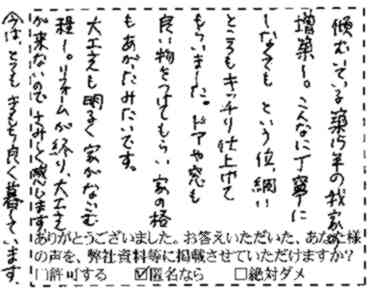 傾いている築15年の我家の
増築！。こんなに丁寧に
しなくても という位、細い
ところもキッチリ仕上げて
もらいました。ドアや窓も
良い物をつけてもらい 家の格
もあがたみたいです。
大工さんも明るく 家がなごむ
程！。リフォームが終り、大工さん
が来ないのでさみしく感じます
今は、とても きもち良く暮しています。
ありがとうございました。お答えいただいた、あなた様
の声を、弊社資料等に掲載させていただけますか？
□許可する ☑匿名なら □絶対ダメ